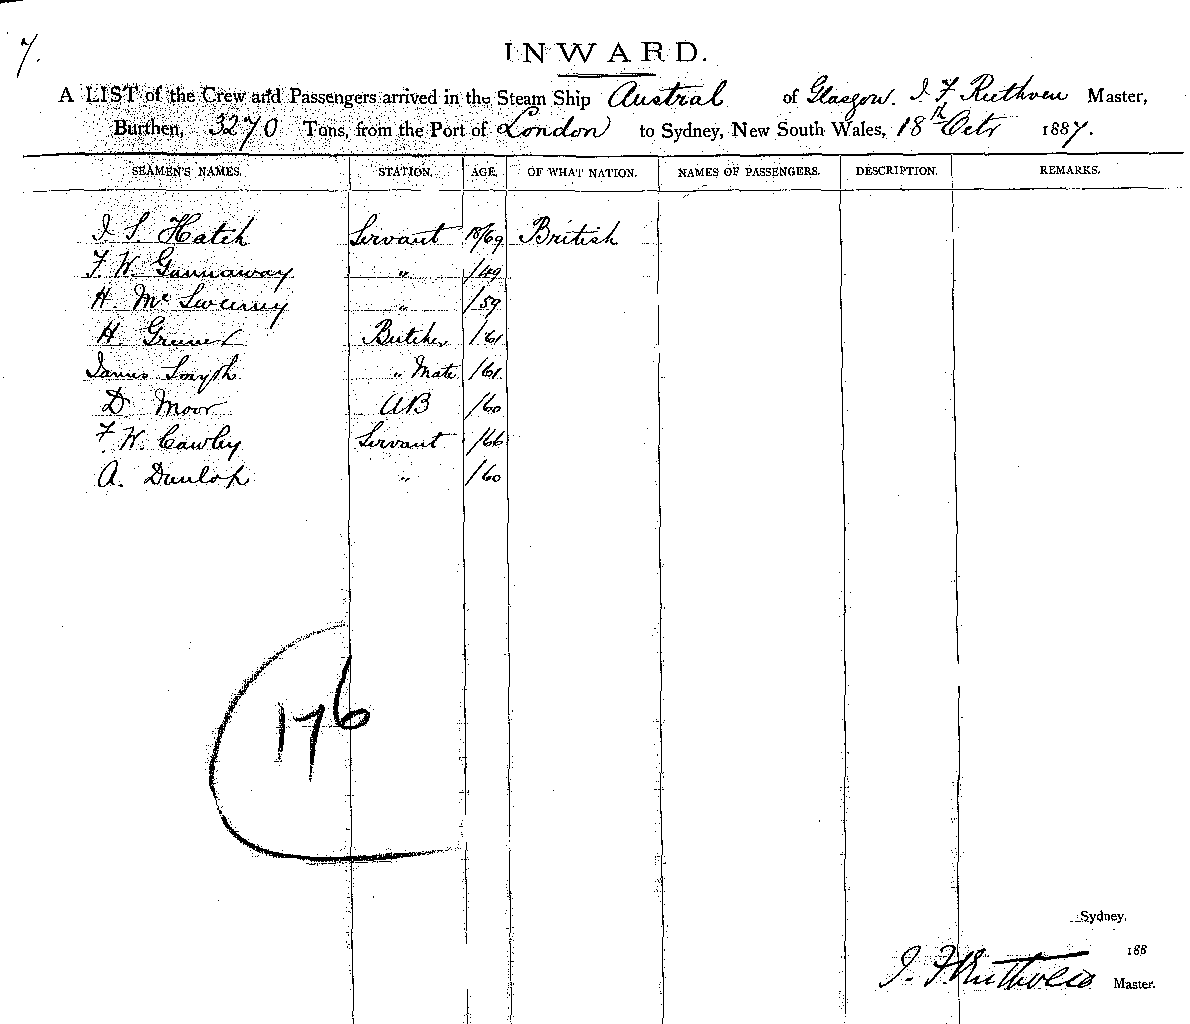 7.
INWARD.
A LIST of the Crew and Passengers arrived in the Steam Ship Austral of Glasgow. J F Ruthven Master,
Burthen, 3270 Tons, from the Port of London to Sydney, New South Wales, 18th Octr 1887.
SEAMEN'S NAMES. STATION. AGE. OF WHAT NATION. NAMES OF PASSENGERS. DESCRIPTION. REMARKS.
J. S. Hatch Servant 18/69 British
F. W. Gannaway " /49
H. Mc Sweeney " /59
H. Butcher /61
James Smyth " Mate /61
D Moor AB /60
F W. Cawley Servant /66
A. Dunlop " /60
176
Sydney,
188
J. F. Ruthven Master.